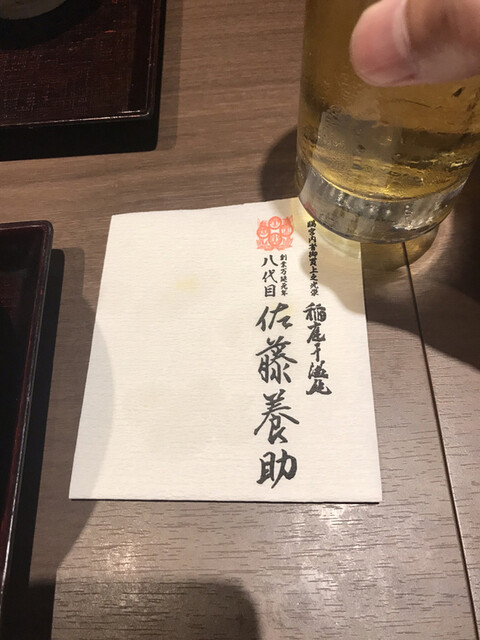 賜宮内省御買上之光栄
稲庭干饂飩
創業万延元年
八代目
佐藤養助